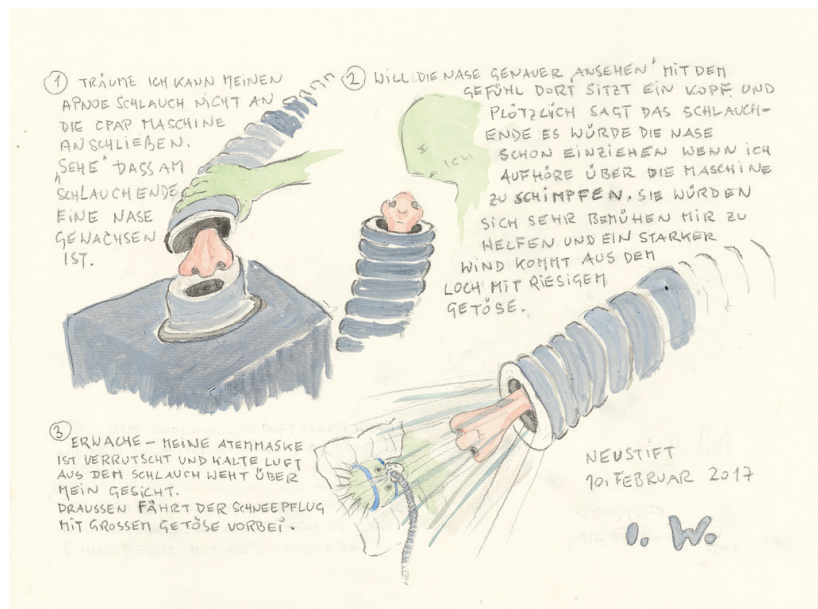 1 TRÄUME ICH KANN MEINEN
APNOE SCHLAUCH NICHT AN
DIE CPAP MASCHINE
ANSCHLIEẞEN.
„SEHE" DASS AM
SCHLAUCHENDE
EINE NASE
GEWACHSEN
IST.
2 WILL DIE NASE GENAUER „ANSEHEN" MIT DEM
GEFÜHL DORT SITZT EIN KOPF UND
PLÖTZLICH SAGT DAS SCHLAUCH-
ENDE ES WÜRDE DIE NASE
SCHON EINZIEHEN WENN ICH
AUFHÖRE ÜBER DIE MASCHINE
ZU SCHIMPFEN. SIE WÜRDEN
SICH SEHR BEMÜHEN MIR ZU
HELFEN UND EIN STARKER
WIND KOMMT AUS DEM
LOCH MIT RIESIGEM
GETÖSE.
ICH
3
ERWACHE – MEINE ATEMMASKE
IST VERRUTSCHT UND KALTE LUFT
AUS DEM SCHLAUCH WEHT ÜBER
MEIN GESICHT.
DRAUSSEN FÄHRT DER SCHNEEPFLUG
MIT GROSSEM GETÖSE VORBEI.
NEUSTIFT
10. FEBRUAR 2017
I. W.